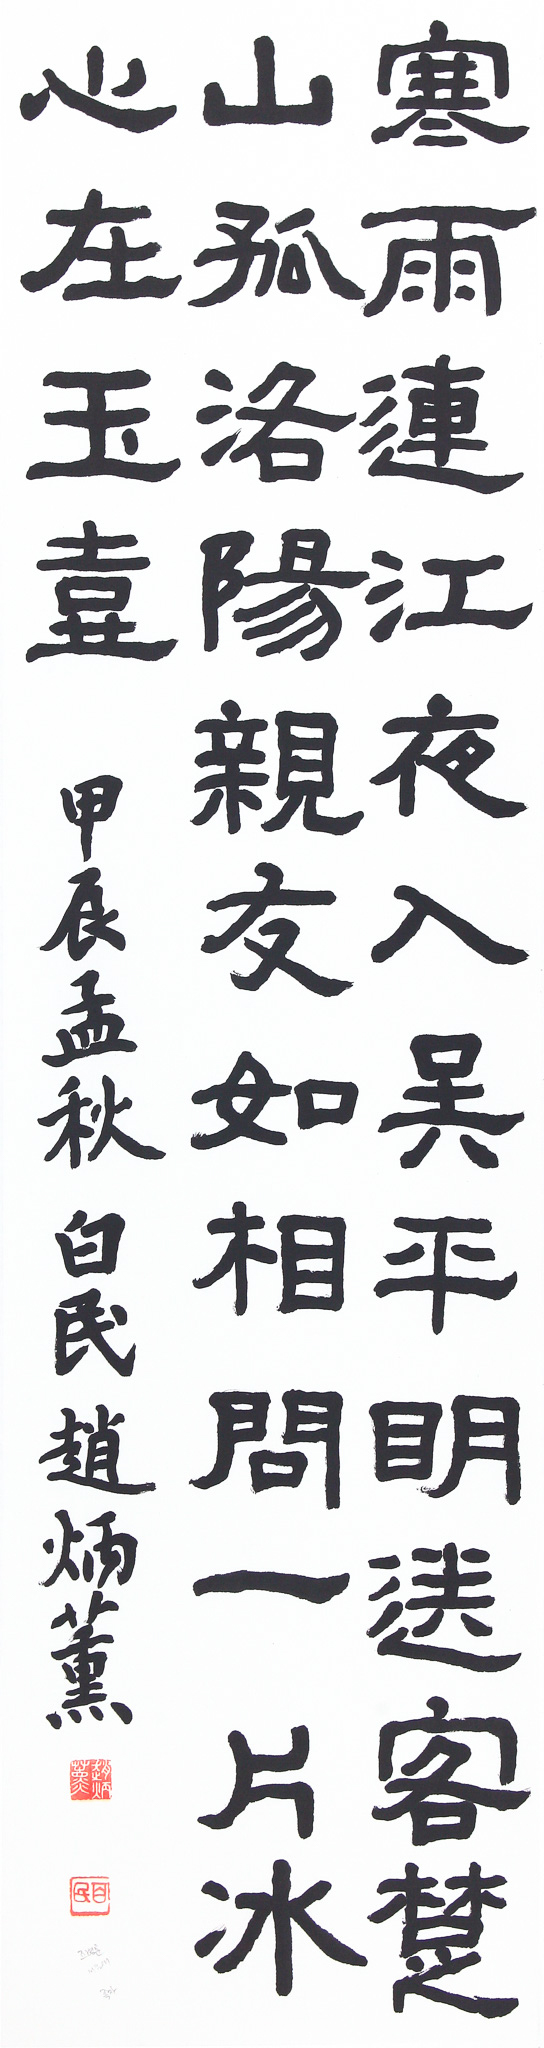 寒雨連江夜入吳平明送客楚
山孤洛陽親友如相問一片冰
心在玉壼
甲辰孟秋 白民 趙炳薰
趙炳薰
白民